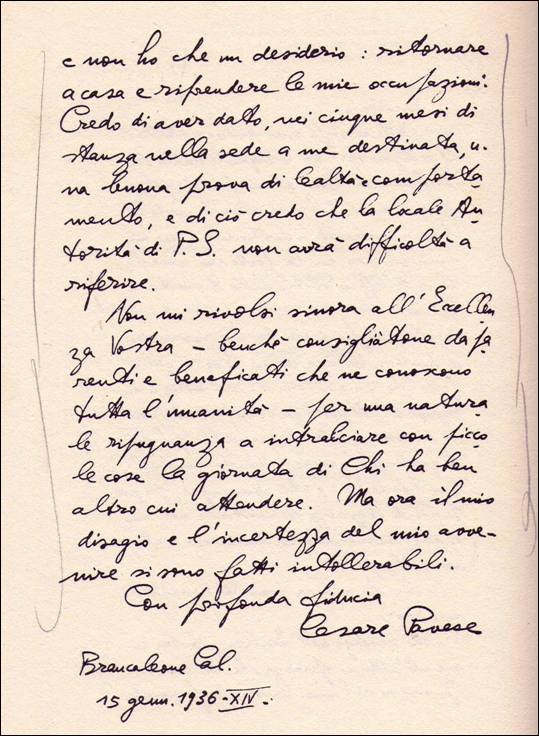 e non ho che un desiderio : ritornare
a casa e riprendere le mie occupazioni.
Credo di aver dato, nei cinque mesi di
stanza nella sede a me destinata, u-
na buona prova di lealtà e comporta
mento, e di ciò credo che la locale Au-
torità di P. S. non avrà difficoltà a
riferire.
Non mi rivolsi sinora all'Eccellen
za Vostra – benché consigliàtone da pa
renti e beneficati che ne conoscono
tutta l'umanità – per una natura
le ripugnanza a intralciare con picco
le cose la giornata di Chi ha ben
altro cui attendere. Ma ora il mio
disagio e l'incertezza del mio avve-
nire si sono fatti intollerabili.
Con profonda fiducia
Cesare Pavese
Brancaleone Cal.
15 genn. 1936-XIV.